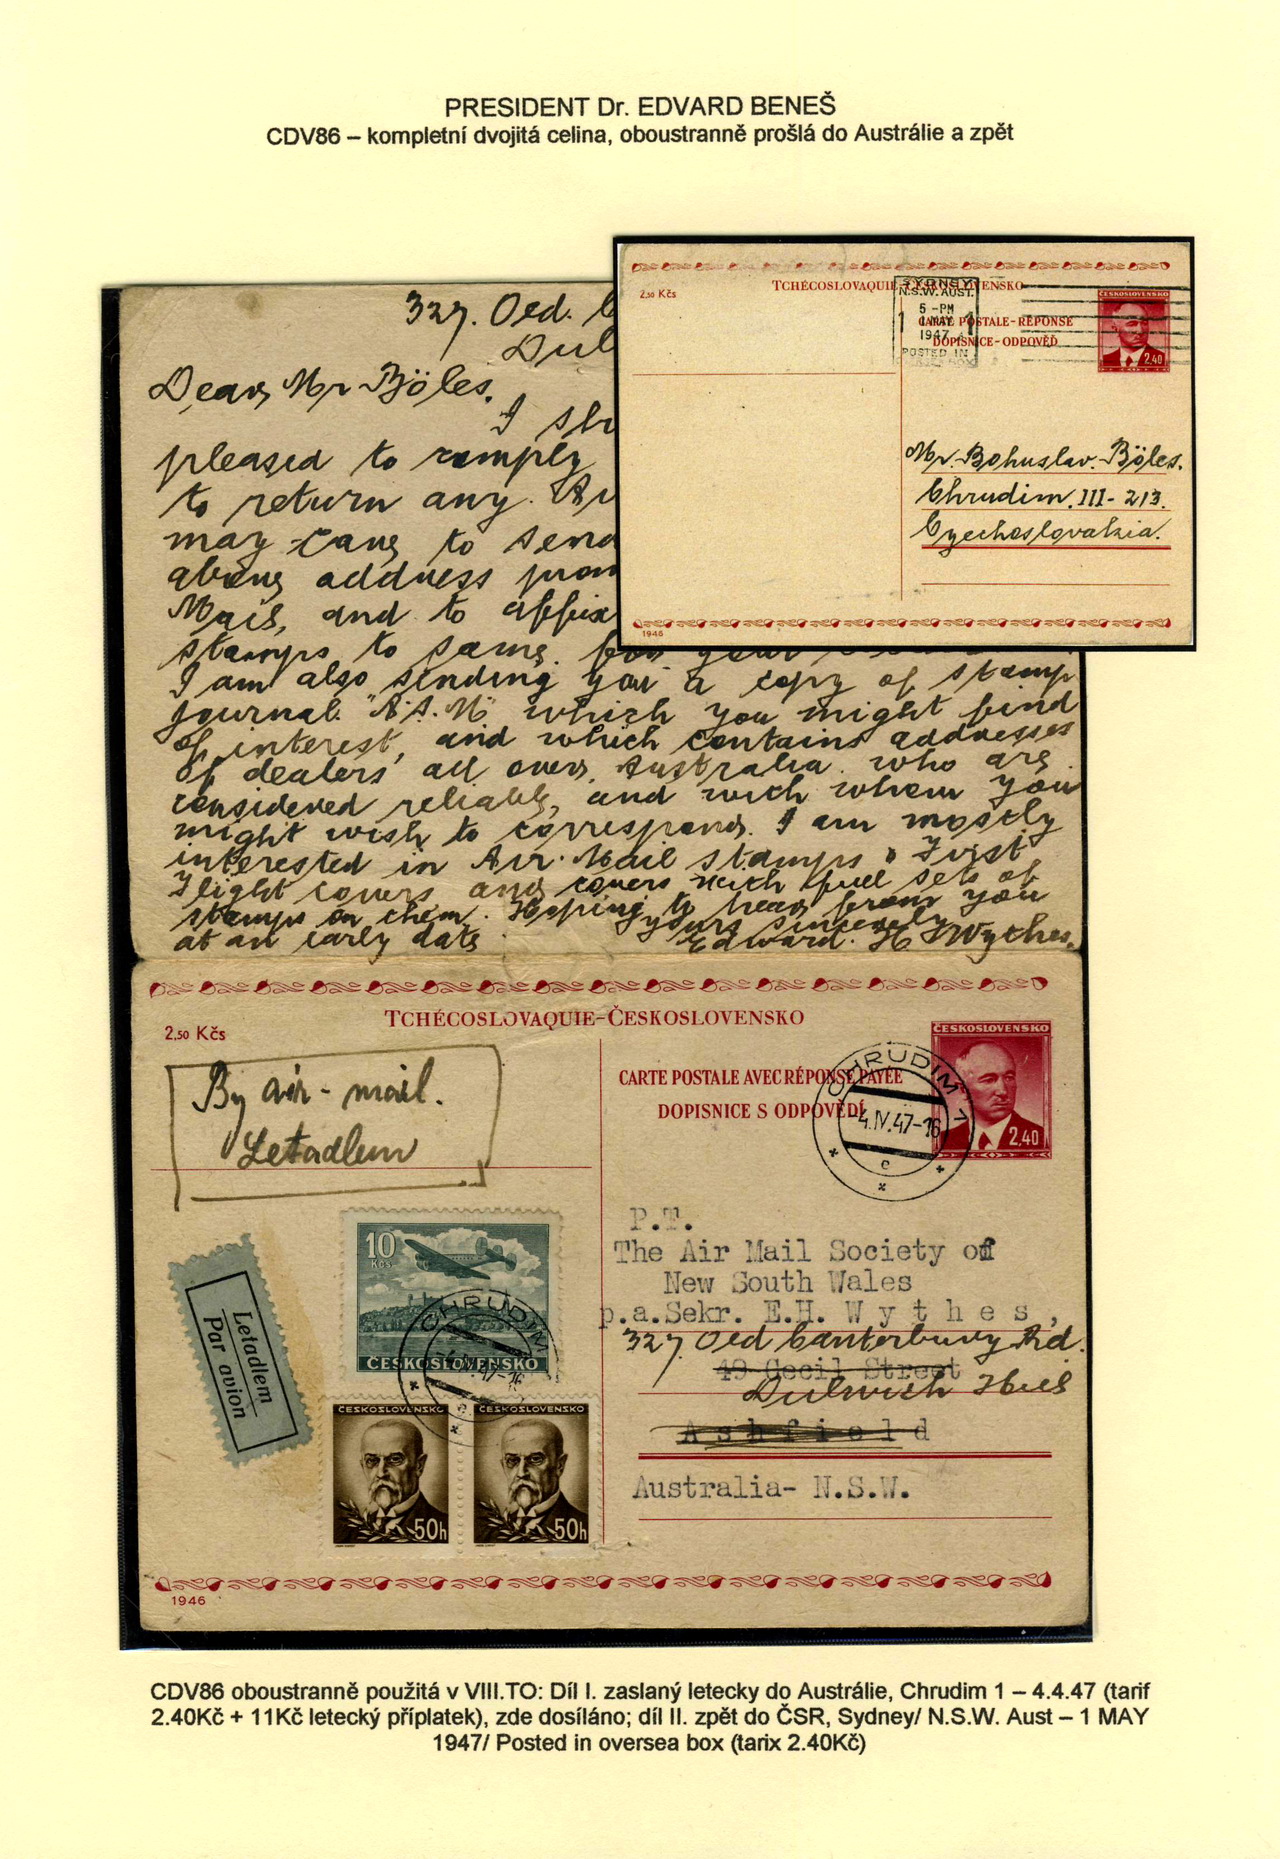 PRESIDENT Dr. EDVARD BENEŠ
CDV86 – kompletní dvojitá celina, oboustranně prošlá do Austrálie a zpět
2,50 Kčs
TCHÉCOSLOVAQUIE-ČESKOSLOVENSKO
SYDNEY
N.S.W. AUST.
5 - PM
1 MAY 1
1947
POSTED IN
CARTE POSTALE-RÉPONSE
DOPISNICE-ODPOVĚĎ
ČESKOSLOVENSKO
2,40
Mr. Bohuslav. Böles.
Chrudim. III- 213.
Czechoslovakia.
1946
327. Old.
Dul
Dear, Mr Böles.
I sh
pleased to comply
to return any. Au
may care to send
above address from
Mail, and to affix
stamps to same. for your
I am also sending you a copy of stamp
journal. "A.S.M", which you might find
of interest, and which contains addresses
of dealers all over, Australia. who are
considered reliable, and with whom you
might wish to correspond. I am mostly
interested in Air. Mail stamps, First
Flight covers and covers with full sets of
stamps on them. Hoping to hear from you
at an early date
yours sincerely
Edward. H Wythes.
2,50 Kčs
TCHÉCOSLOVAQUIE-ČESKOSLOVENSKO
By air - mail.
Letadlem
CARTE POSTALE AVEC RÉPONSE PAYÉE
DOPISNICE S ODPOVĚDÍ
CHRUDIM 1
-4.IV.47-16
c
ČESKOSLOVENSKO
2,40
P.T.
The Air Mail Society of
New South Wales
p.a.Sekr. E.H. Wythes,
327. Old Canterbury Rd.
49 Cecil Street
Dulwich Hill
Ashfield
Australia- N.S.W.
Letadlem
Par avion
10
Kčs
ČESKOSLOVENSKO
CHRUDIM
-4.IV.47-16
ČESKOSLOVENSKO
50h
ČESKOSLOVENSKO
50h
1946
CDV86 oboustranně použitá v VIII.TO: Díl I. zaslaný letecky do Austrálie, Chrudim 1 – 4.4.47 (tarif
2.40Kč + 11Kč letecký příplatek), zde dosíláno; díl II. zpět do ČSR, Sydney/ N.S.W. Aust – 1 MAY
1947/ Posted in oversea box (tarix 2.40Kč)